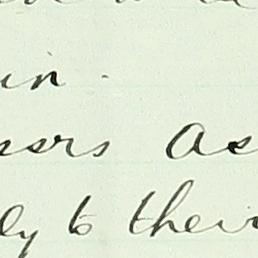 in.
sers As
ly to their